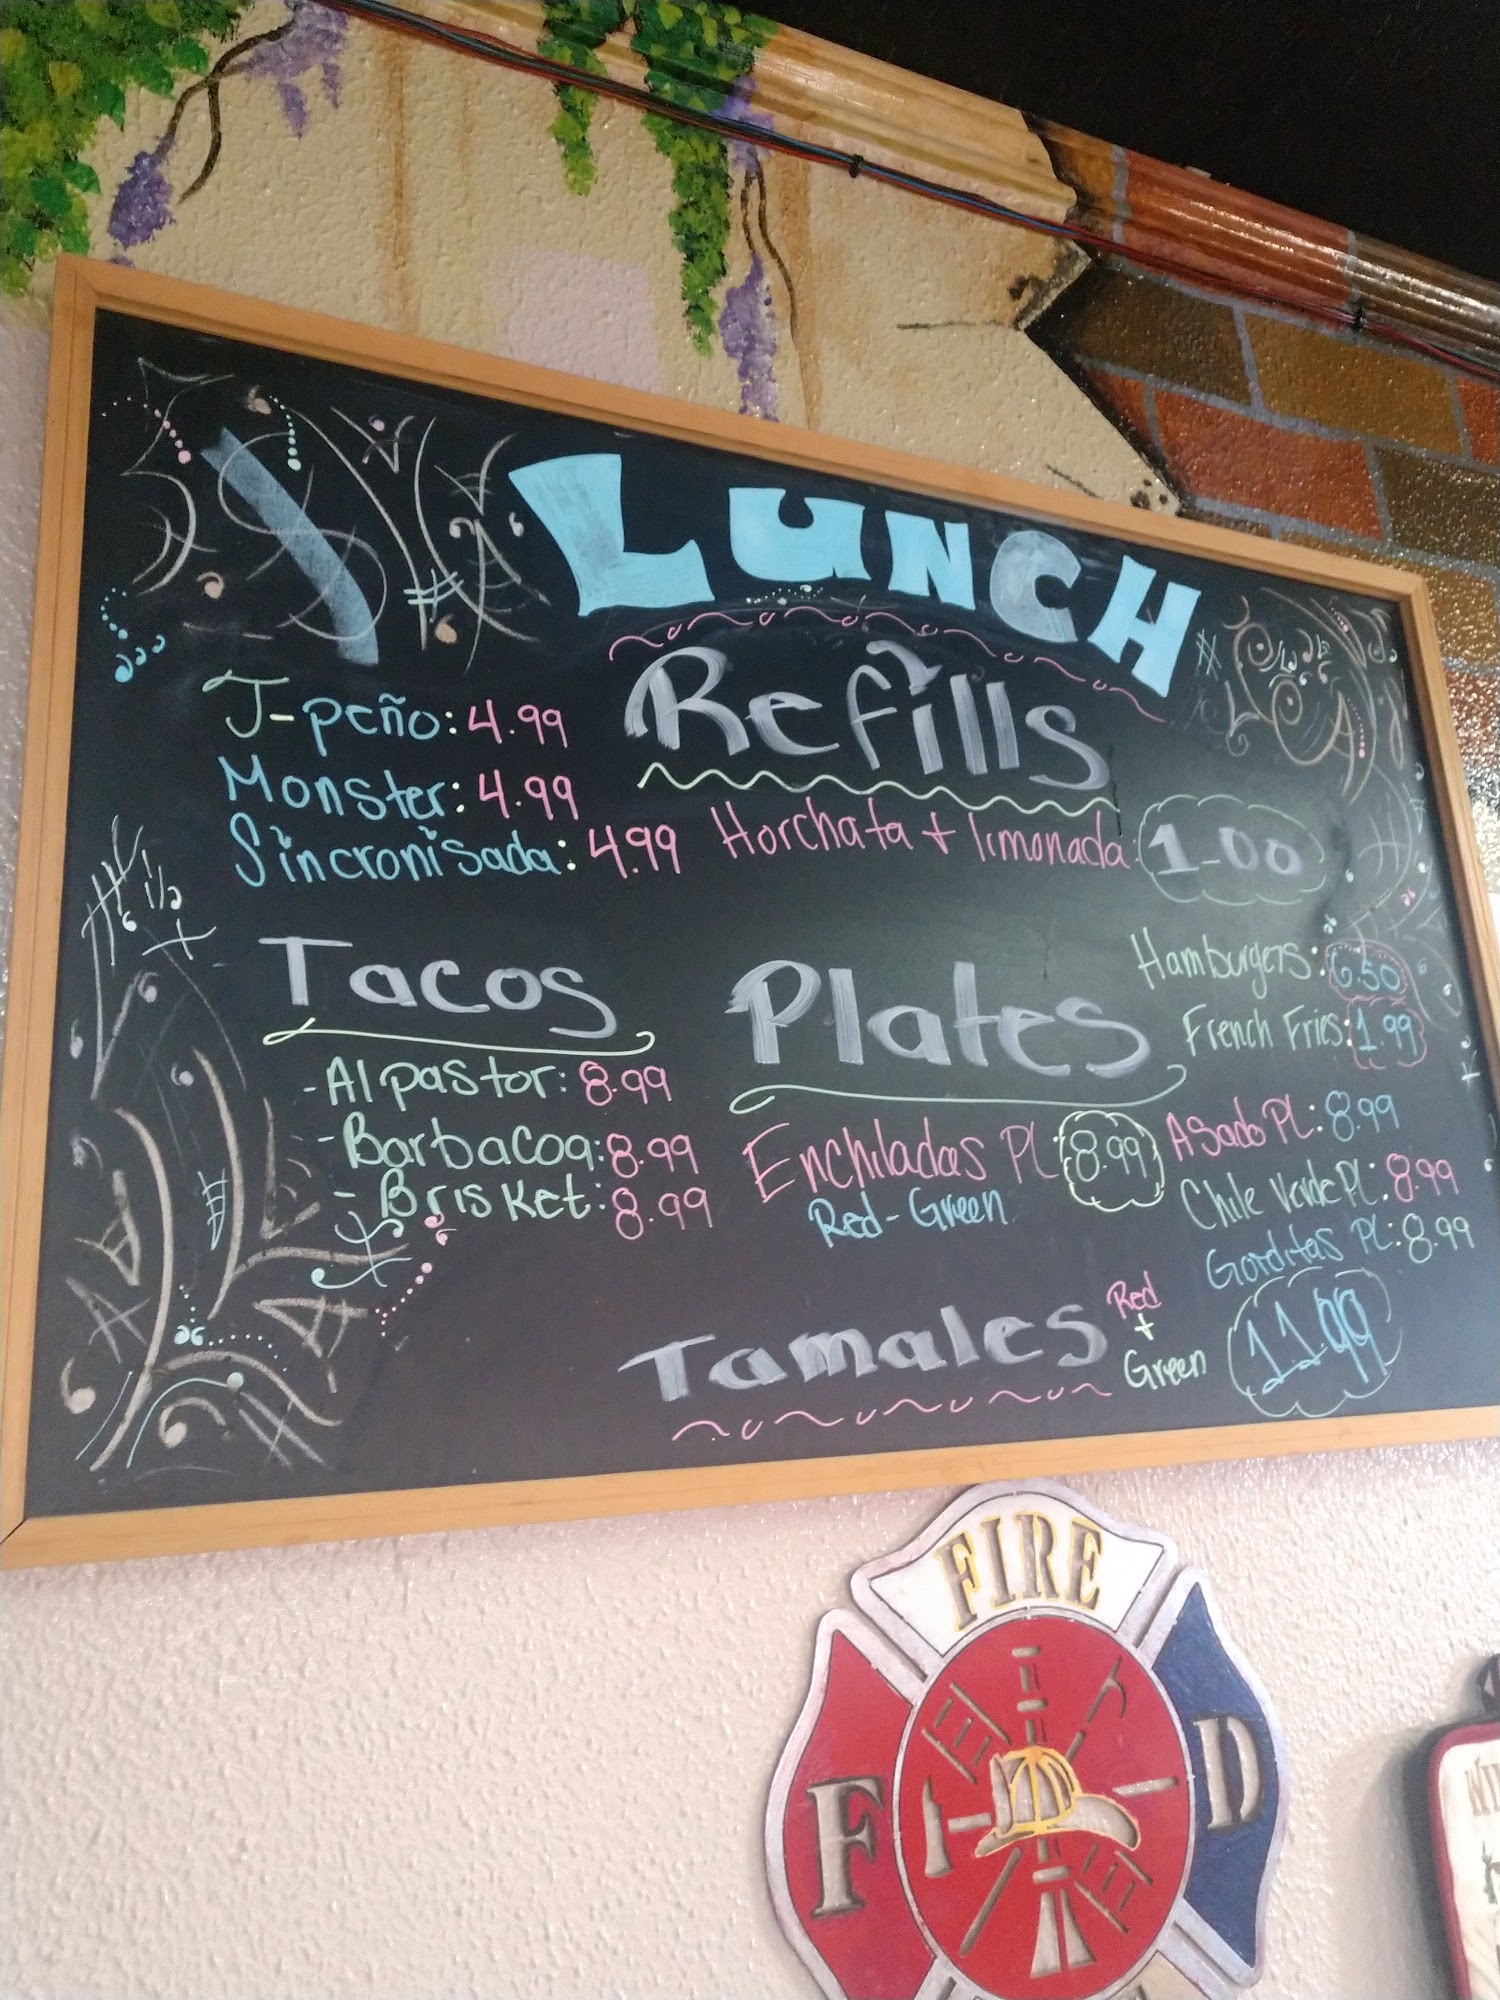 LUNCH
J-peño: 4.99
Monster: 4.99
Sincronisada: 4.99
Refills
Horchata + limonada: 1.00
Tacos
- Al pastor: 8.99
- Barbacoa: 8.99
- Brisket: 8.99
Plates
Enchiladas Pl: 8.99
Red - Green
Hamburgers: 6.50
French Fries: 1.99
Asado Pl: 8.99
Chile Verde Pl: 8.99
Gorditas Pl: 8.99
Tamales Red + Green 11.99
FIRE
F D